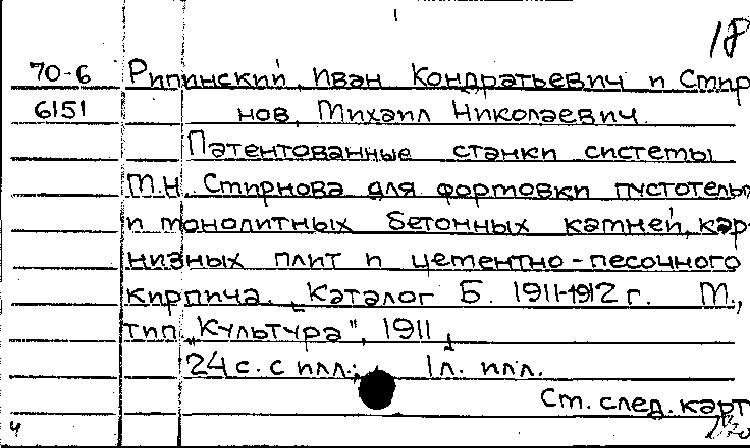 18
70-6 Рипинский, Иван Кондратьевич и Смир
6151 нов, Михаил Николаевич.
Патентованные станки системы
М.Н. Смирнова для формовки пустотелых
и монолитных бетонных камней, кар-
низных плит и цементно-песочного
кирпича. Каталог Б. 1911-1912 г. М.,
тип. „Культура", 1911.
24 с. с илл.; 1 л. илл.
См. след. карт
ч